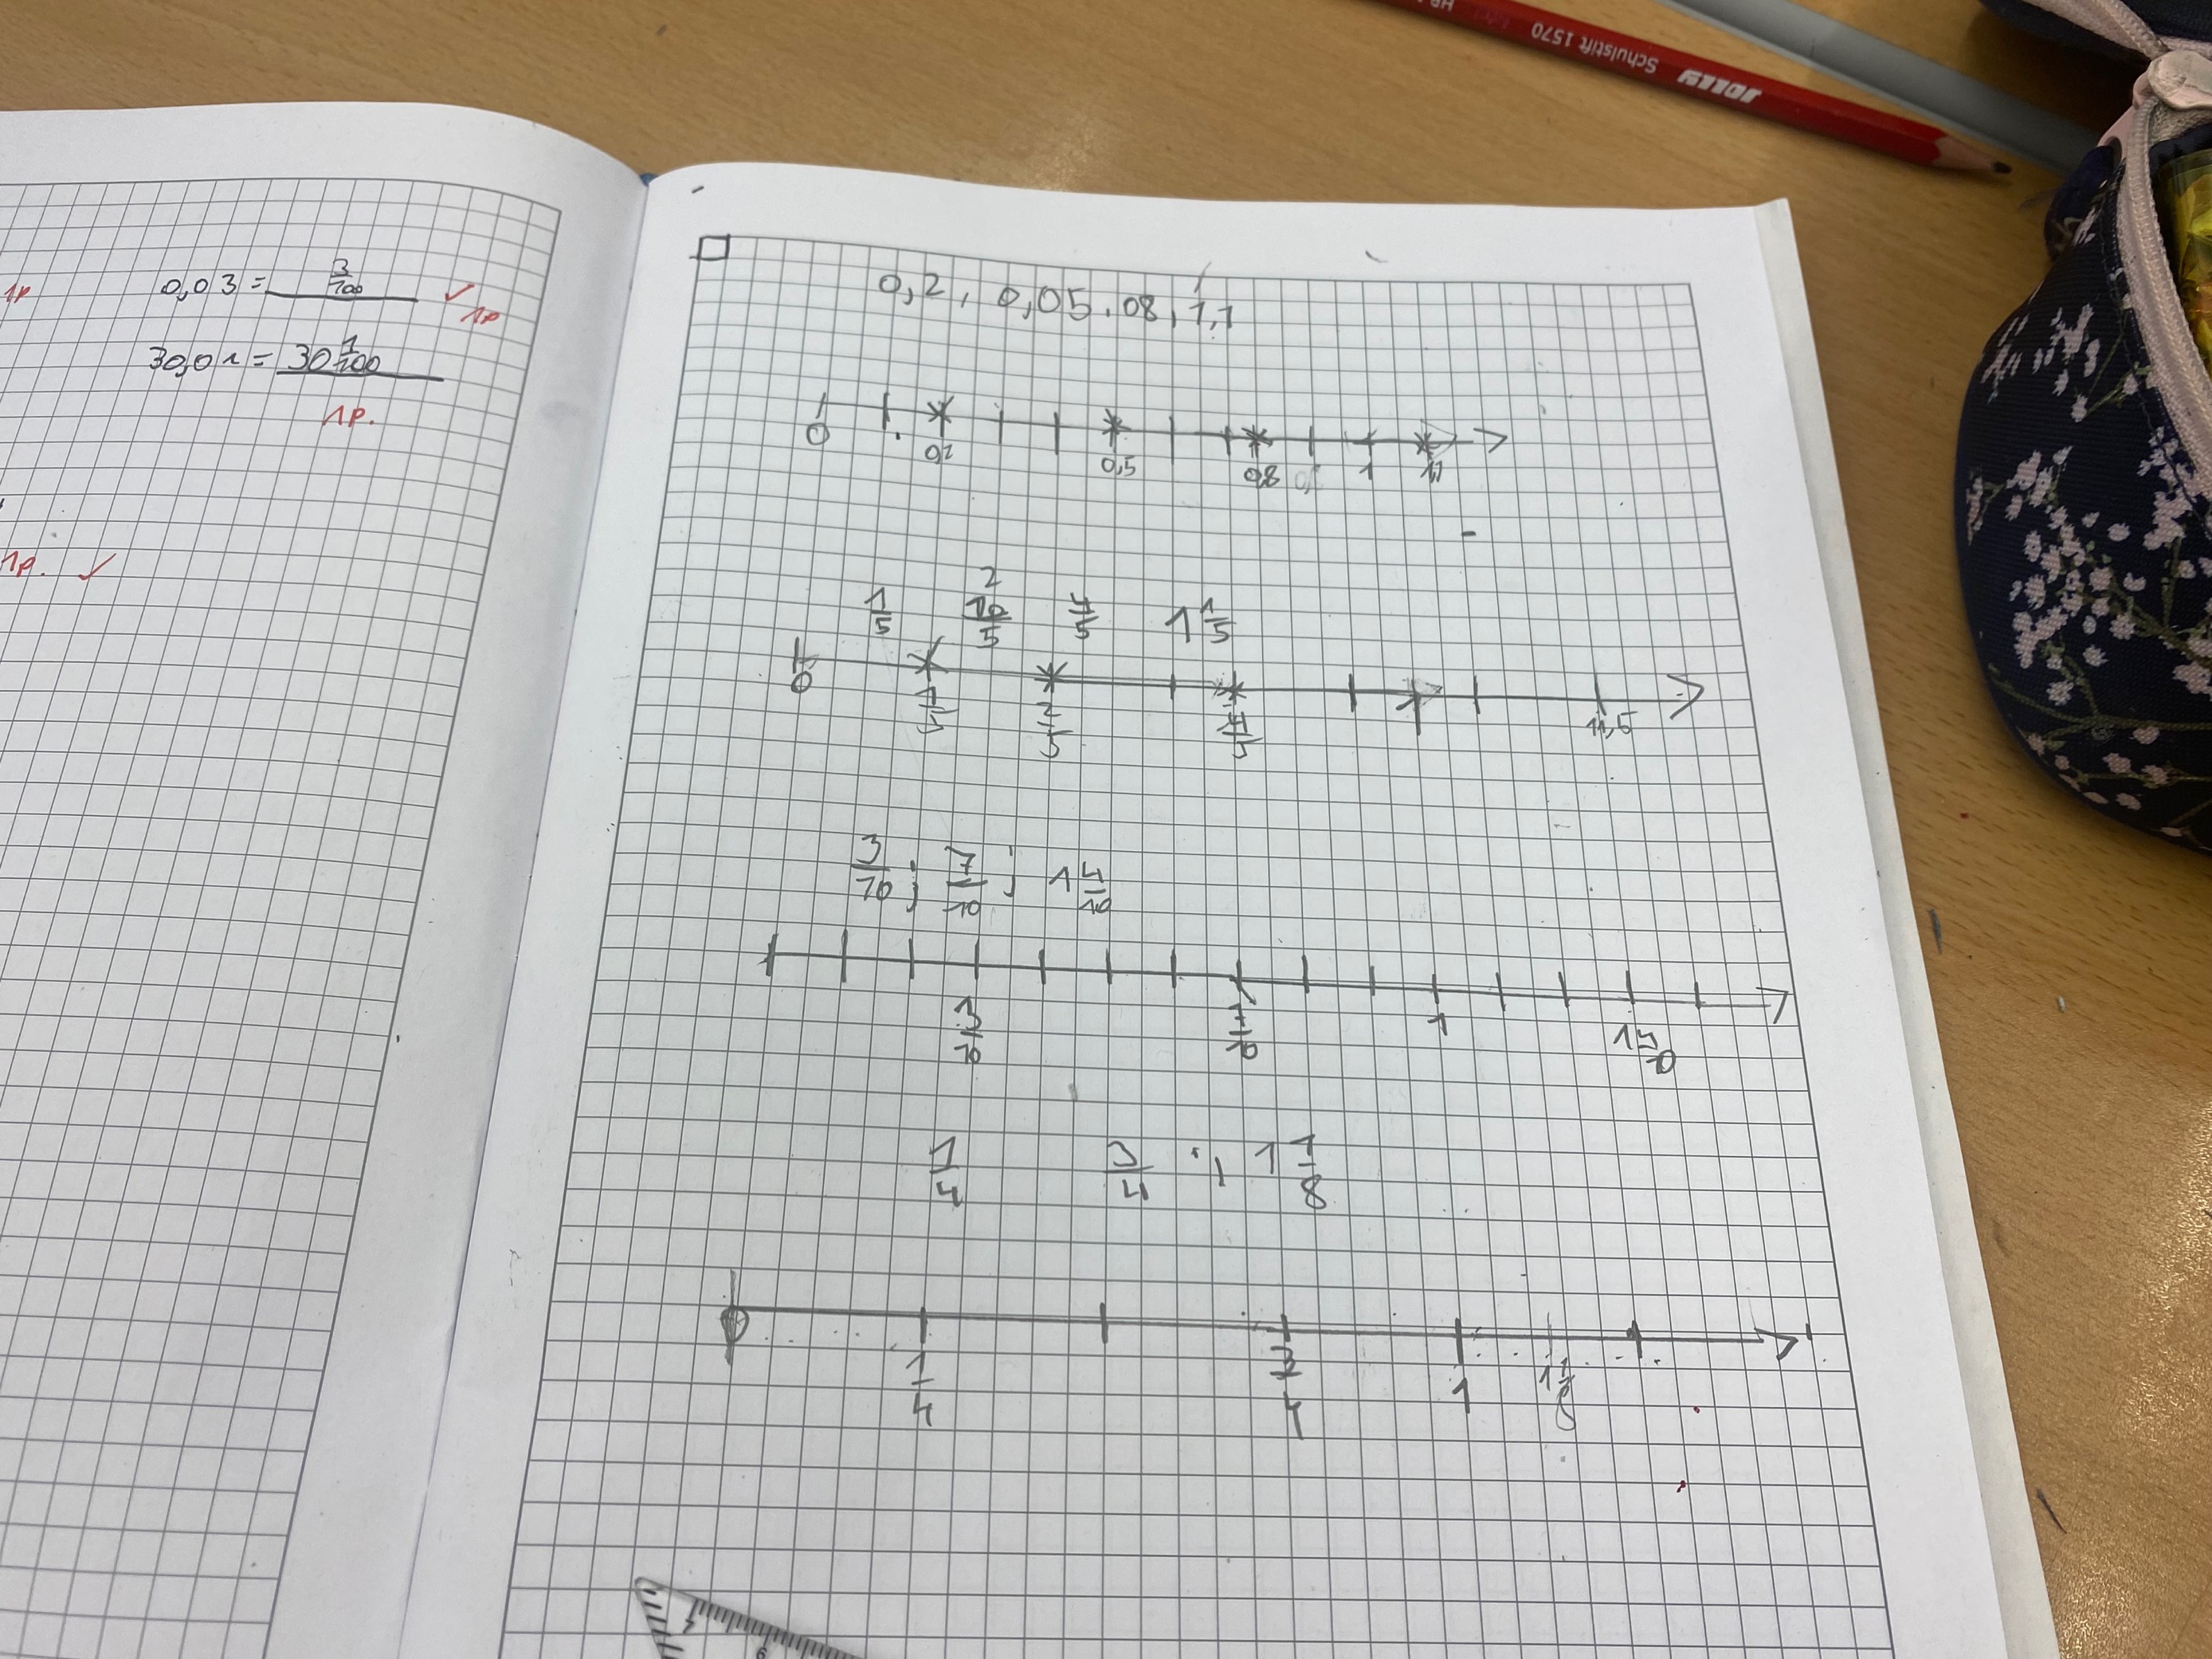 JOLLY Schulstift 1570 HB
1P
0,03 = 3/100 ✓
1P
30,01 = 30 1/100
1P.
1P. ✓
0,2, 0,05. 08, 1,1
0 0,2 0,5 0,8 1 1,1
1/5 2 10/5 4/5 1 1/5
0 1/5 2/5 4/5 11,5
3/10 ; 7/10 ; 1 4/10
3/10 7/10 1 1 4/10
1/4 3/4 ; 1 1/8
0 1/4 3/4 1 1 1/8